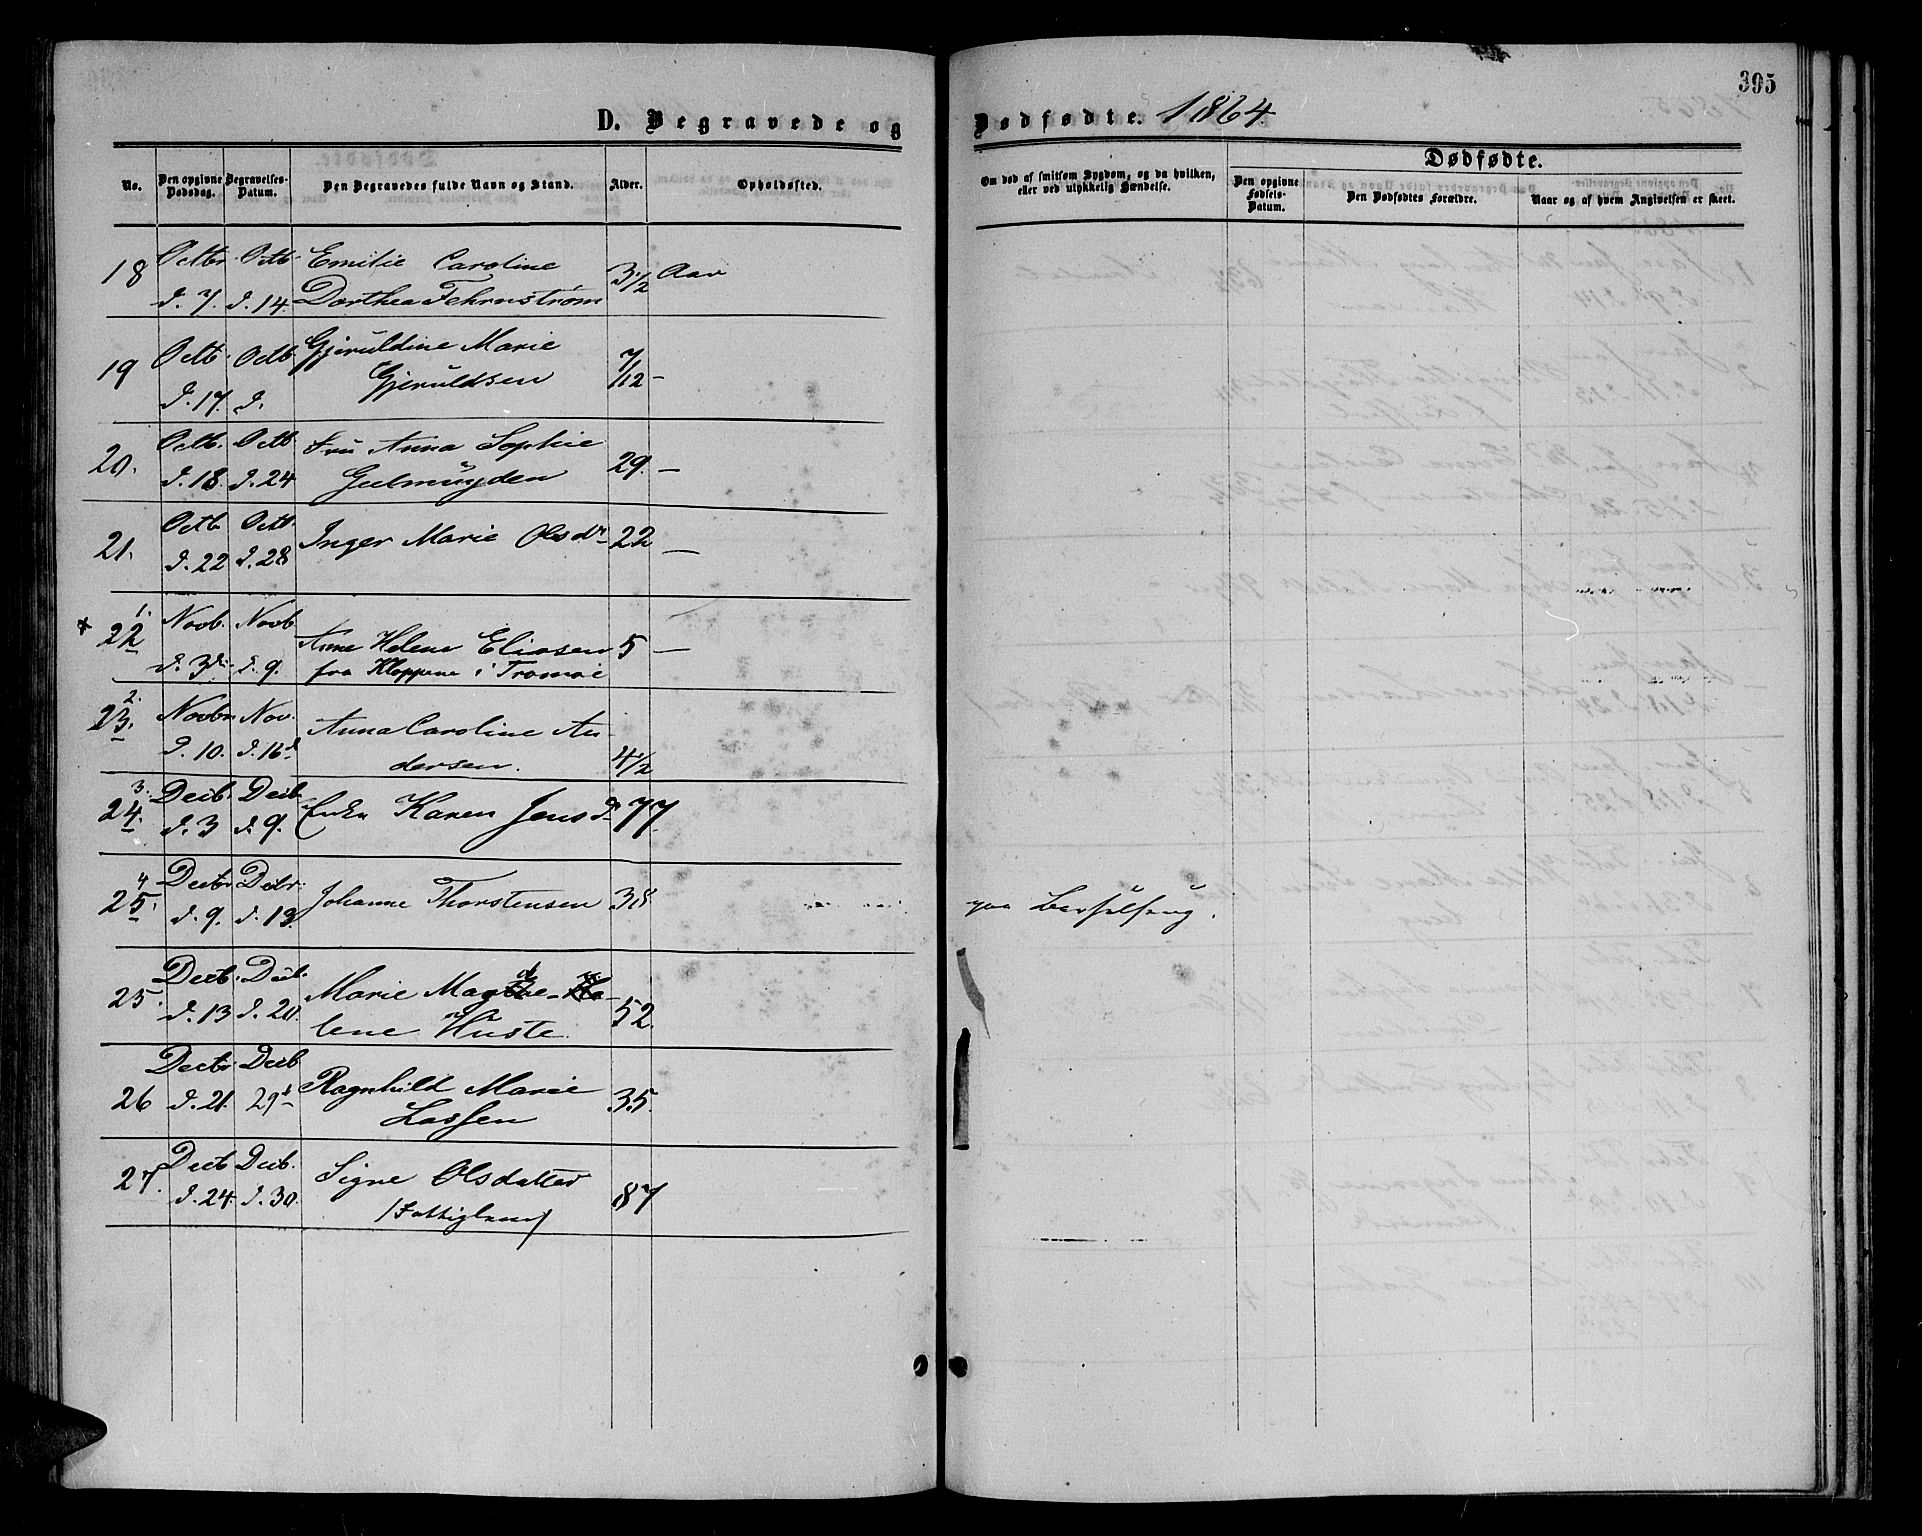 395
D. Begravede og Dødfødte. 1864.
No.
Den opgivne Dødsdag.
Begravelses-Datum.
Den Begravedes fulde Navn og Stand.
Alder.
Opholdssted.
Om død af smitsom Sygdom, og da hvilken,
eller ved ulykkelig Hændelse.
Dødfødte.
Den opgivne Fødsels-Datum.
Den Dødfødtes Forældre.
Naar og af hvem Angivelsen er skeet.
18 Octbr Octb Emilie Caroline 3 1/2 Aar
d. 7. d. 14. Dorthea Fehrnstrøm
19 Octb. Octb Gjeruldine Marie 7/12 –
d. 17. d. Gjeruldsen
20. Octb. Octb Fru Anna Sophie 29. –
d. 18. d. 24 Gulmüyden
21. Octb Octb. Inger Marie Olsdr 22 –
d. 22 d. 28
1.
* 22 Novb. Novb Anne Helene Eliasen 5 –
d. 3die d. 9. fra Kloppene i Tromøe
2.
23. Novbr Nov. Anna Caroline An-
d. 10. d. 16d dersen. 4 1/2
3.
24. Decb. Decb Enke Karen Jensd. 77.
d. 3 d. 9.
4
25. Decbr Decbr. Johanne Thorstensen 38 paa Barselseng.
d. 9. d. 13.
25. Decb. Decb. Marie Magda-
d. 13 d. 20. lene Huste. 52.
26 Decbr Decb Ragnhild Marie 35.
d. 21. 29d Lassen
27. Decb Decb. Signe Olsdatter 87
d. 24. d. 30. /Fattiglem/